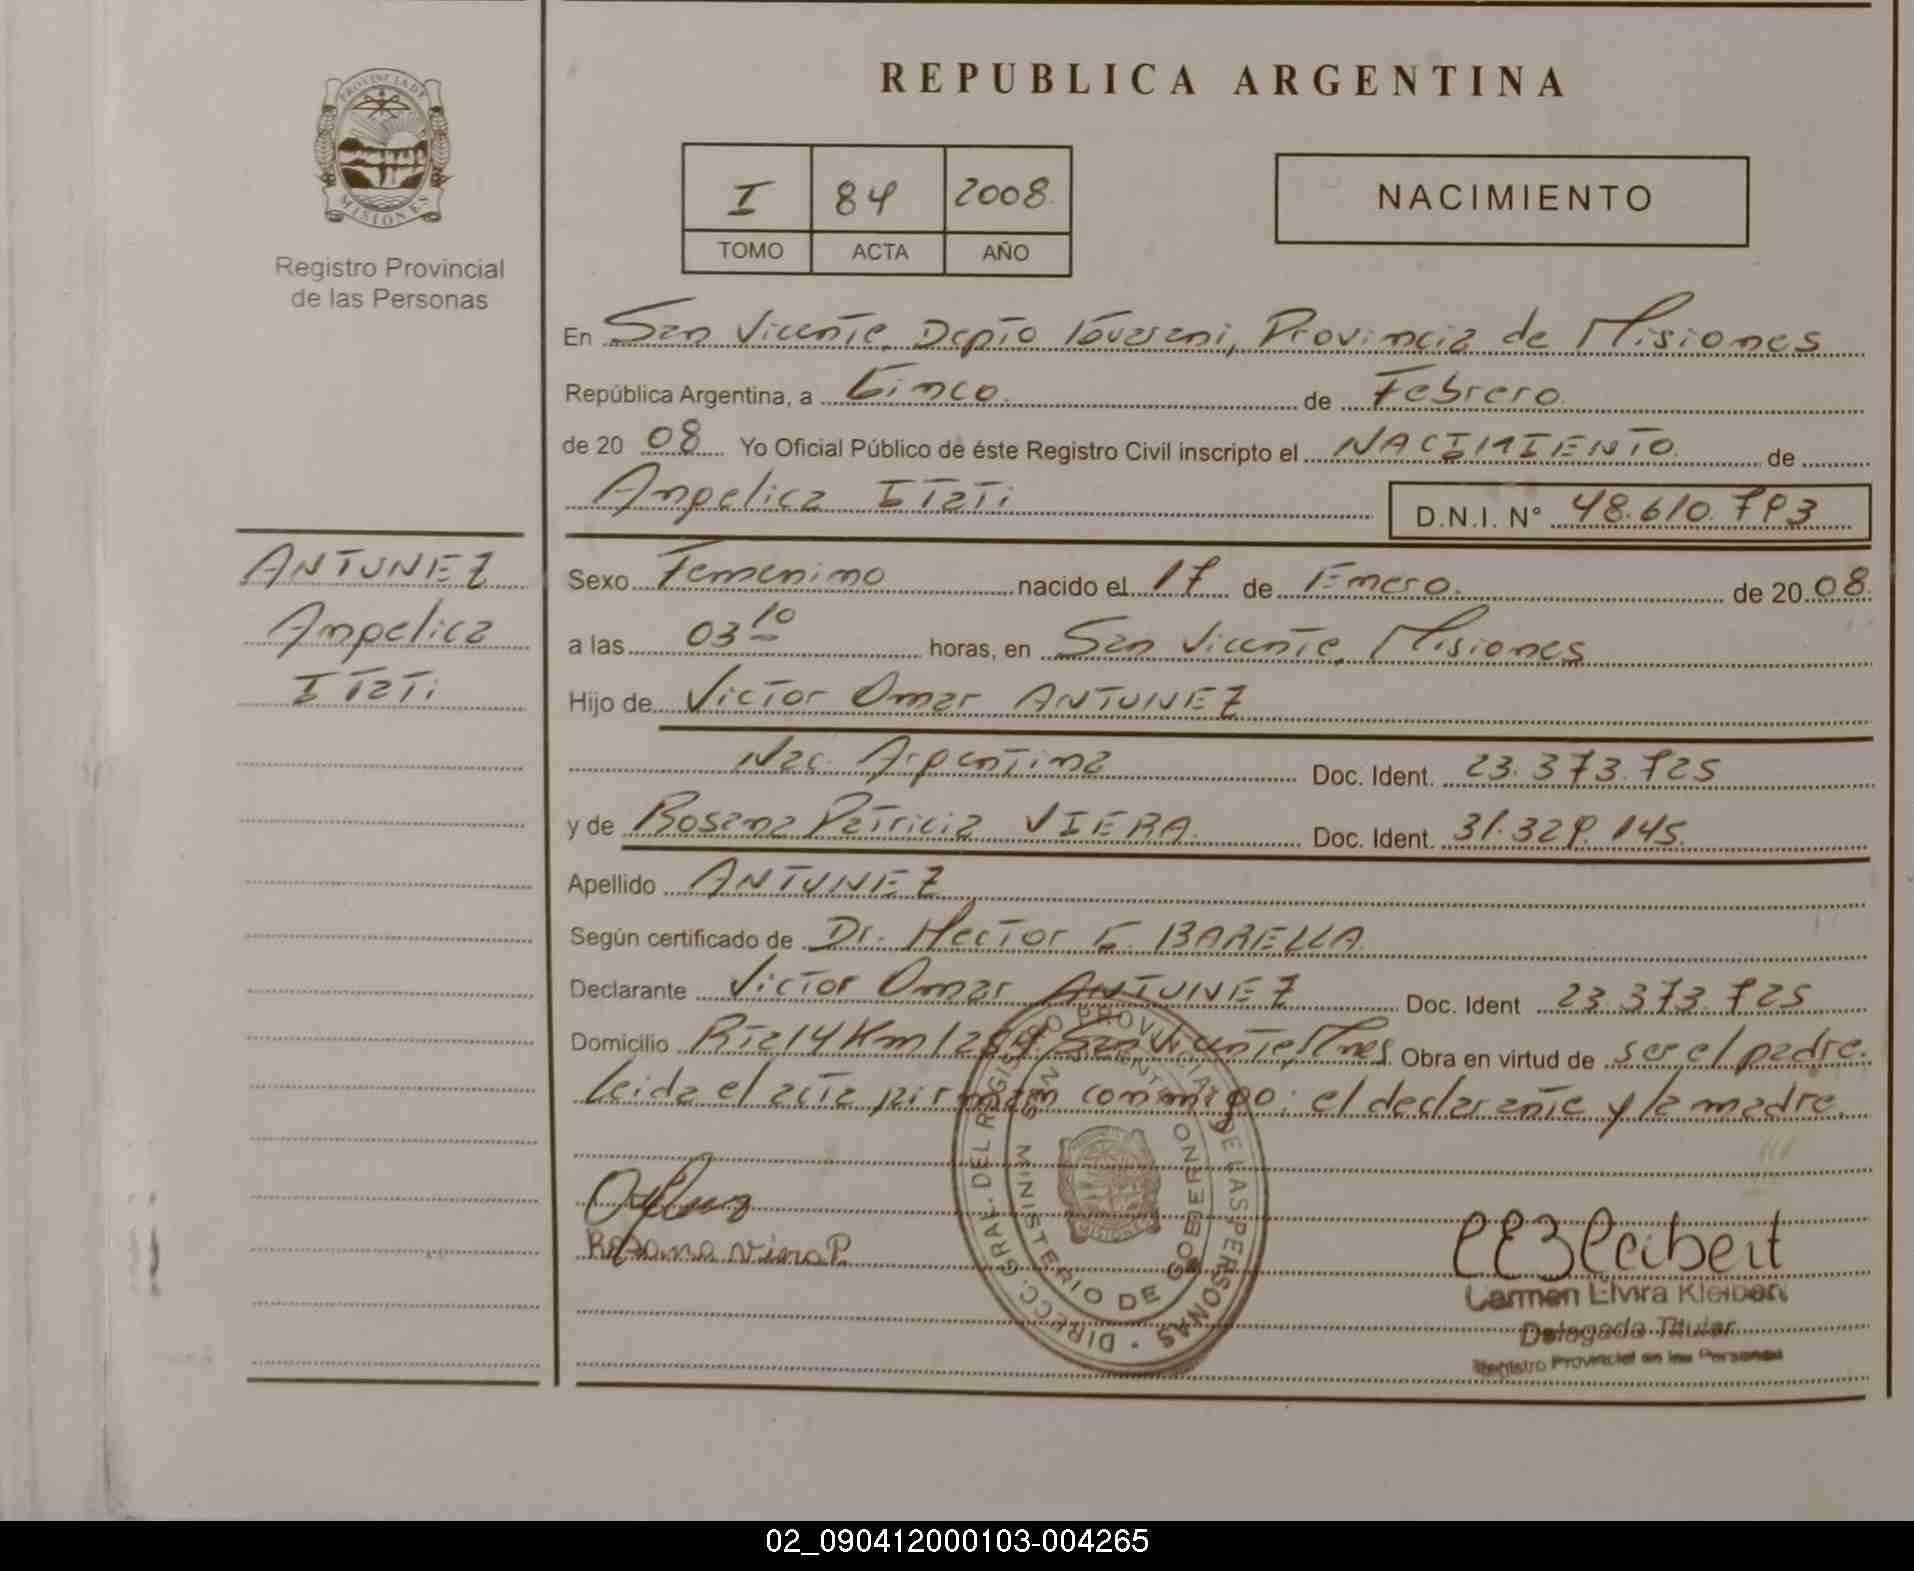 REPUBLICA ARGENTINA
PROVINCIA DE
MISIONES
Registro Provincial
de las Personas
I 84 2008
TOMO ACTA AÑO
NACIMIENTO
En San Vicente, Depto Guarani, Provincia de Misiones
República Argentina, a Cinco de Febrero
de 20 08 Yo Oficial Público de éste Registro Civil inscripto el NACIMIENTO de
Angelica Itati D.N.I. N° 48.610.793
ANTUNEZ
Angelica
Itati
Sexo Femenino nacido el 17 de Enero de 20 08
a las 03 10 horas, en San Vicente, Misiones
Hijo de Victor Omar ANTUNEZ
Nac. Argentina Doc. Ident. 23.373.725
y de Rosana Patricia VIERA Doc. Ident. 31.329.145
Apellido ANTUNEZ
Según certificado de Dr. Hector E. BARELLA
Declarante Victor Omar ANTUNEZ Doc. Ident 23.373.725
Domicilio Rta 14 Km San Vicente, Mnes Obra en virtud de ser el padre.
Leida el acta firman conmigo: el declarante y la madre.
DIRECC. GRAL. DEL REGISTRO PROVINCIAL DE LAS PERSONAS
MINISTERIO DE GOBIERNO
MISIONES
Rosana Viera P.
CEKleibert
Carmen Elvira Kleibert
Delegada Titular
Registro Provincial de las Personas
02_090412000103-004265